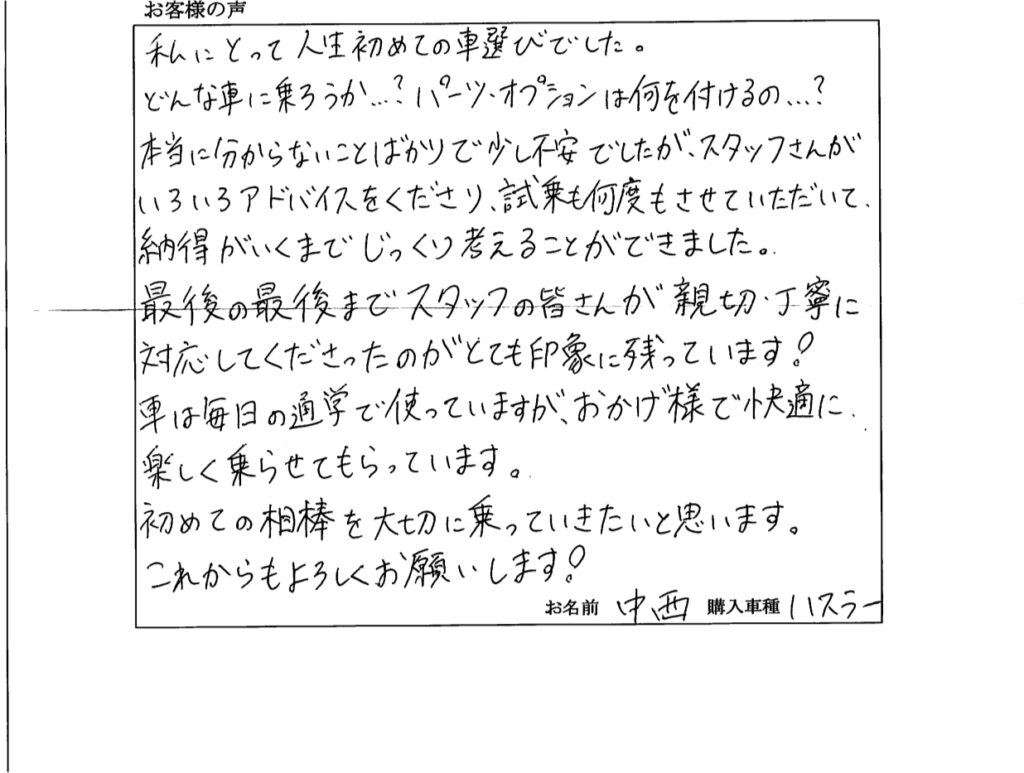 お客様の声
私にとって人生初めての車選びでした。
どんな車に乗ろうか…?パーツ・オプションは何を付けるの…?
本当に分からないことばかりで少し不安でしたが、スタッフさんが
いろいろアドバイスをくださり、試乗も何度もさせていただいて、
納得がいくまでじっくり考えることができました。
最後の最後までスタッフの皆さんが親切・丁寧に
対応してくださったのがとても印象に残っています!
車は毎日の通学で使っていますが、おかげ様で快適に
楽しく乗らせてもらっています。
初めての相棒を大切に乗っていきたいと思います。
これからもよろしくお願いします!
お名前 中西 購入車種 ハスラー